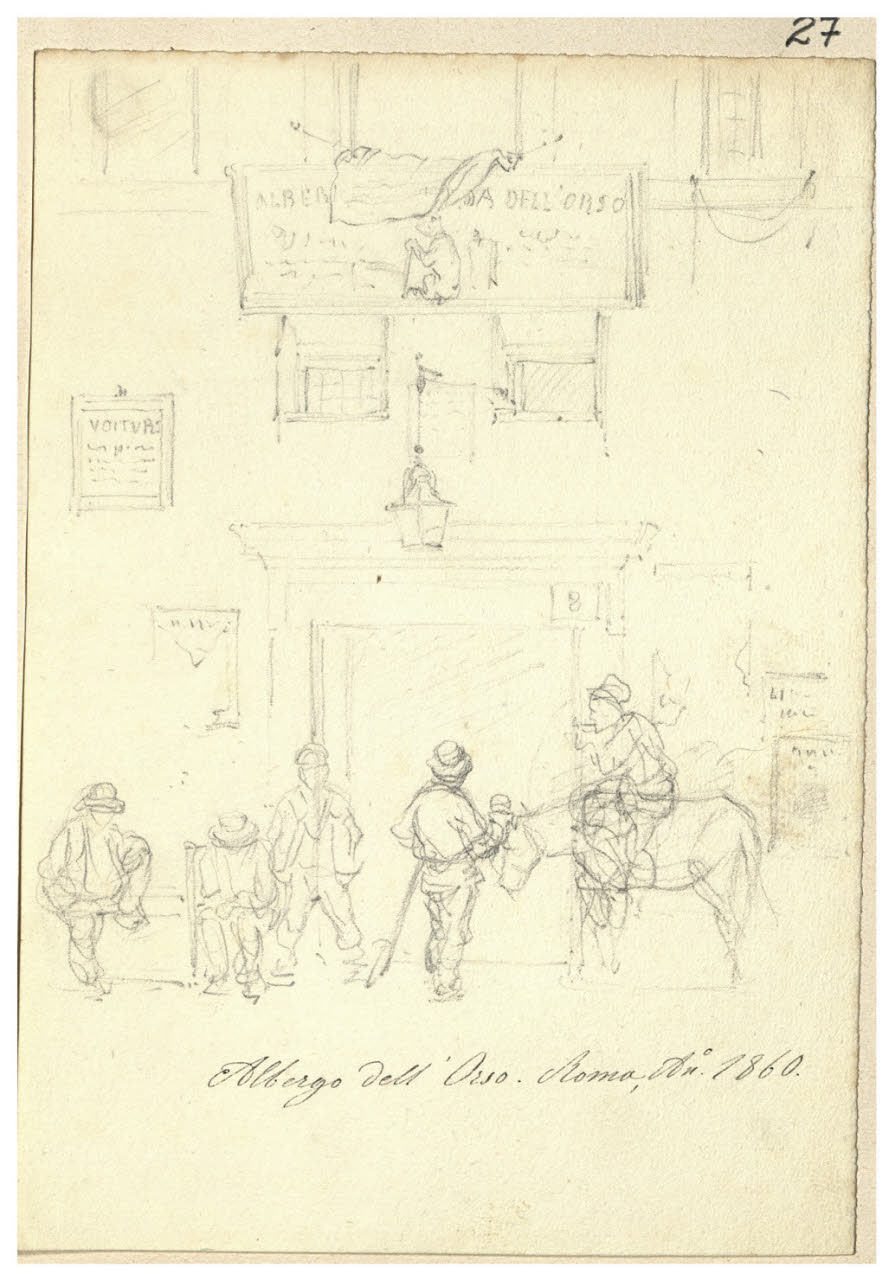 27
ALBER DA DELL'ORSO
VOITURE
8
Albergo dell' Orso. Roma, Aº. 1860.